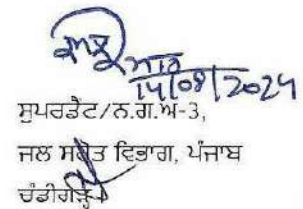 14/08/2024
ਸੁਪਰਡੈਂਟ/ਨ.ਗ.ਅ-3,
ਜਲ ਸਰੋਤ ਵਿਭਾਗ, ਪੰਜਾਬ
ਚੰਡੀਗੜ੍ਹ